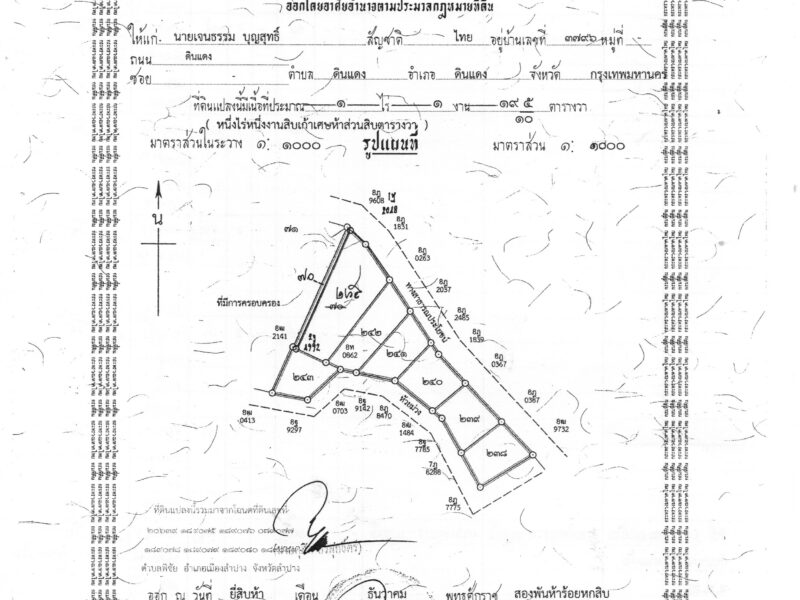 ออกโดยอาศัยอำนาจตามประมวลกฎหมายที่ดิน
ให้แก่ นายเจนธรรม บุญสุทธิ์ สัญชาติ ไทย อยู่บ้านเลขที่ ๓๗๙๖ หมู่ที่ -
ถนน ดินแดง
ซอย - ตำบล ดินแดง อำเภอ ดินแดง จังหวัด กรุงเทพมหานคร
ที่ดินแปลงนี้มีเนื้อที่ประมาณ ๑ ไร่ ๑ งาน ๑๙ ๕/๑๐ ตารางวา
( หนึ่งไร่หนึ่งงานสิบเก้าเศษห้าส่วนสิบตารางวา )
มาตราส่วนในระวาง ๑: ๑๐๐๐ รูปแผนที่ มาตราส่วน ๑:
น
8ฎ 9608
8ฎ 1831
๗๑
8ฎ 0263
8ฎ 2037
๗๐
๗๑
ที่มีการครอบครอง
ทางสาธารณประโยชน์
8ฎ 2485
8ฎ 1839
8ฒ 2141
4992
8ท 0862
๒๔๒
๒๔๑
8ฎ 0367
๒๔๓
๒๔๐
8ฎ 0387
8ฒ 0413
8ฐ 9297
8ฒ 0703
8ฐ 9142
8ฎ 8470
ห้วยม่วง
8ฒ 1484
๒๓๙
8ฒ 9732
8ฐ 7785
๒๓๘
7ฎ 8288
8ฎ 7775
ที่ดินแปลงนี้รวมมาจากโฉนดที่ดินเลขที่
ตำบลพิชัย อำเภอเมืองลำปาง จังหวัดลำปาง
ออก ณ วันที่ ยี่สิบห้า เดือน ธันวาคม พุทธศักราช สองพันห้าร้อยหกสิบ